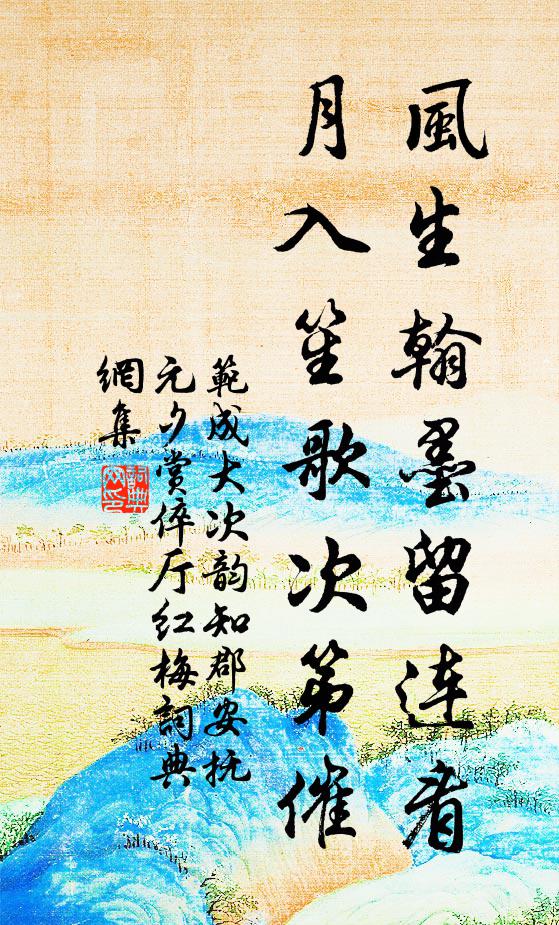 風生翰墨留連看
月入笙歌次第催
範成大次韵知郡安抚
元夕賞倅厅红梅詞典
網集